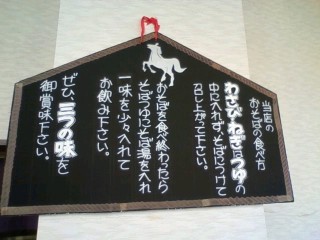 当店の
おそばの食べ方
わさび・ねぎはつゆの
中に入れず、そばにつけて
召し上がって下さい。
おそばを食べ終わったら
そばつゆにそば湯を入れ
一味を少々入れて
お飲み下さい。
ぜひ、三つの味を
御賞味下さい。